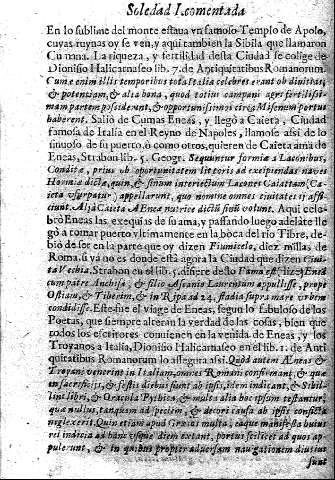 Soledad I. comentada
En lo sublime del monte estaua vn famoso Templo de Apolo,
cuyas ruynas oy se ven, y aqui tambien la Sibila que llamaron
Cumana. La riqueza, y fertilidad desta Ciudad se colige de
Dionisio Halicarnaseo lib. 7. de Antiquitatibus Romanorum.
Cume enim illis temporibus tota Italia celebres erant ob diuitias,
& potentiam, & alia bona, quod totius campani agri fertilissi-
mam partem possiderent, & opportunissimos circa Misenum portus
haberent. Saliò de Cumas Eneas, y llegò a Caieta, Ciudad
famosa de Italia en el Reyno de Napoles, llamose assi de lo
sinuoso de su puerto, ò como otros quieren de Caieta ama de
Eneas, Strabon lib. 5. Geogr. Sequuntur formiæ a Laconibus
Condita, prius ob opportunitatem littoris ad excipiendas naues
Hormiæ dicta, quin, & sinum interiectum Lacones Caiattam,
vsurpatur, appellarunt, quo nomine omnes ciuitates
Alij à Caieta Æneæ nutrice dictū sinū volunt. Aqui cele-
brò Eneas las exequias de su ama, y passando luego adelante lle
gò a tomar puerto vltimamente en la boca del rio Tibre, de-
biò de ser en la parte que oy dizen Fiumicelo, diez millas de
Roma, si ya no es donde està agora la Ciudad que dizen ciui-
ta Vechia. Strabon en el lib. 5. disiere desto Fama est, liæc Eneā
cum patre Anchisa, & filio Ascanio Laurentum appullisse, prope
Ostiam, & Tiberim, & in Ripa ad 24. stadia supra mare vrbem
condidisse. Este fue el viage de Eneas, segun lo fabuloso de los
Poetas, que siempre alteran la verdad de las cosas, bien que
todos los escritores conuienen en la venida de Eneas, y los
Troyanos a Italia, Dionisio Halicarnaseo en el lib. 1. de Anti
quitatibus Romanorum lo assegura assi. Quod autem Æneas &
Troyani venerint in Italiam, omnes Romani confirmant, & quæ
in sacrificijs, & festis diebus fiunt ab ipsis, idem indicant, & Sibil-
lini libri, & Oracula Pythica, & multa alia hoc ipsum testantur,
quæ nullus, tanquam ad speciem, & decori causa ab ipsis conficta
neglexerit. Quin etiam apud Græcos multa, eaque manifesta huius
rei indicia ad hanc vsque diem extant, portus scilicet ad quos ap-
pulerunt, & in quibus propter aduersam nauigationem diutius
sunt